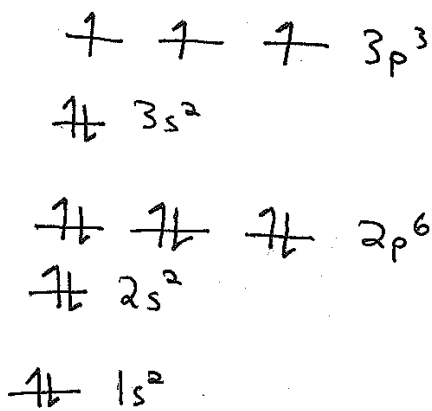 ↿ ↿ ↿ 3p³
⥮ 3s²
⥮ ⥮ ⥮ 2p⁶
⥮ 2s²
⥮ 1s²